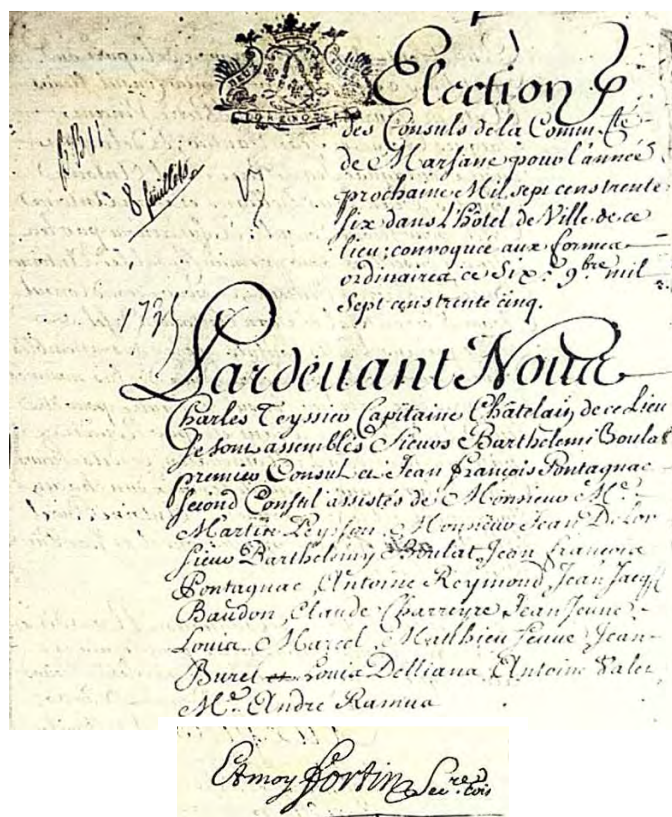 Election
BB 11
8 feuillets
des Consuls de la Comm.té
de Marsane pour l'année
prochaine Mil sept cens trente
six dans L'hotel de Ville de ce
lieu, convoquée aux formes
ordinaires ce Six: 9.bre mil
Sept cens trente cinq.
1735
Pardeuant Nous
Charles Teyssier Capitaine Châtelain de ce Lieu
se sont assemblés Sieurs Barthelemi Boulat
premier Consul et Jean françois Pontagnac
second Consul assistés de Monsieur M.e
Martin Peysson, Monsieur Jean Delor
sieur Barthelemy Boulat, Jean françois
Pontagnac, Antoine Reymond, Jean Jacq.
Baudon, Claude Charreyre Jean Jeune
Louis Marcel, Matthieu Jeune Jean
Buret et Louis Delliana, Antoine Valer
M.e André Ramus
Et moy Fortin Secre.